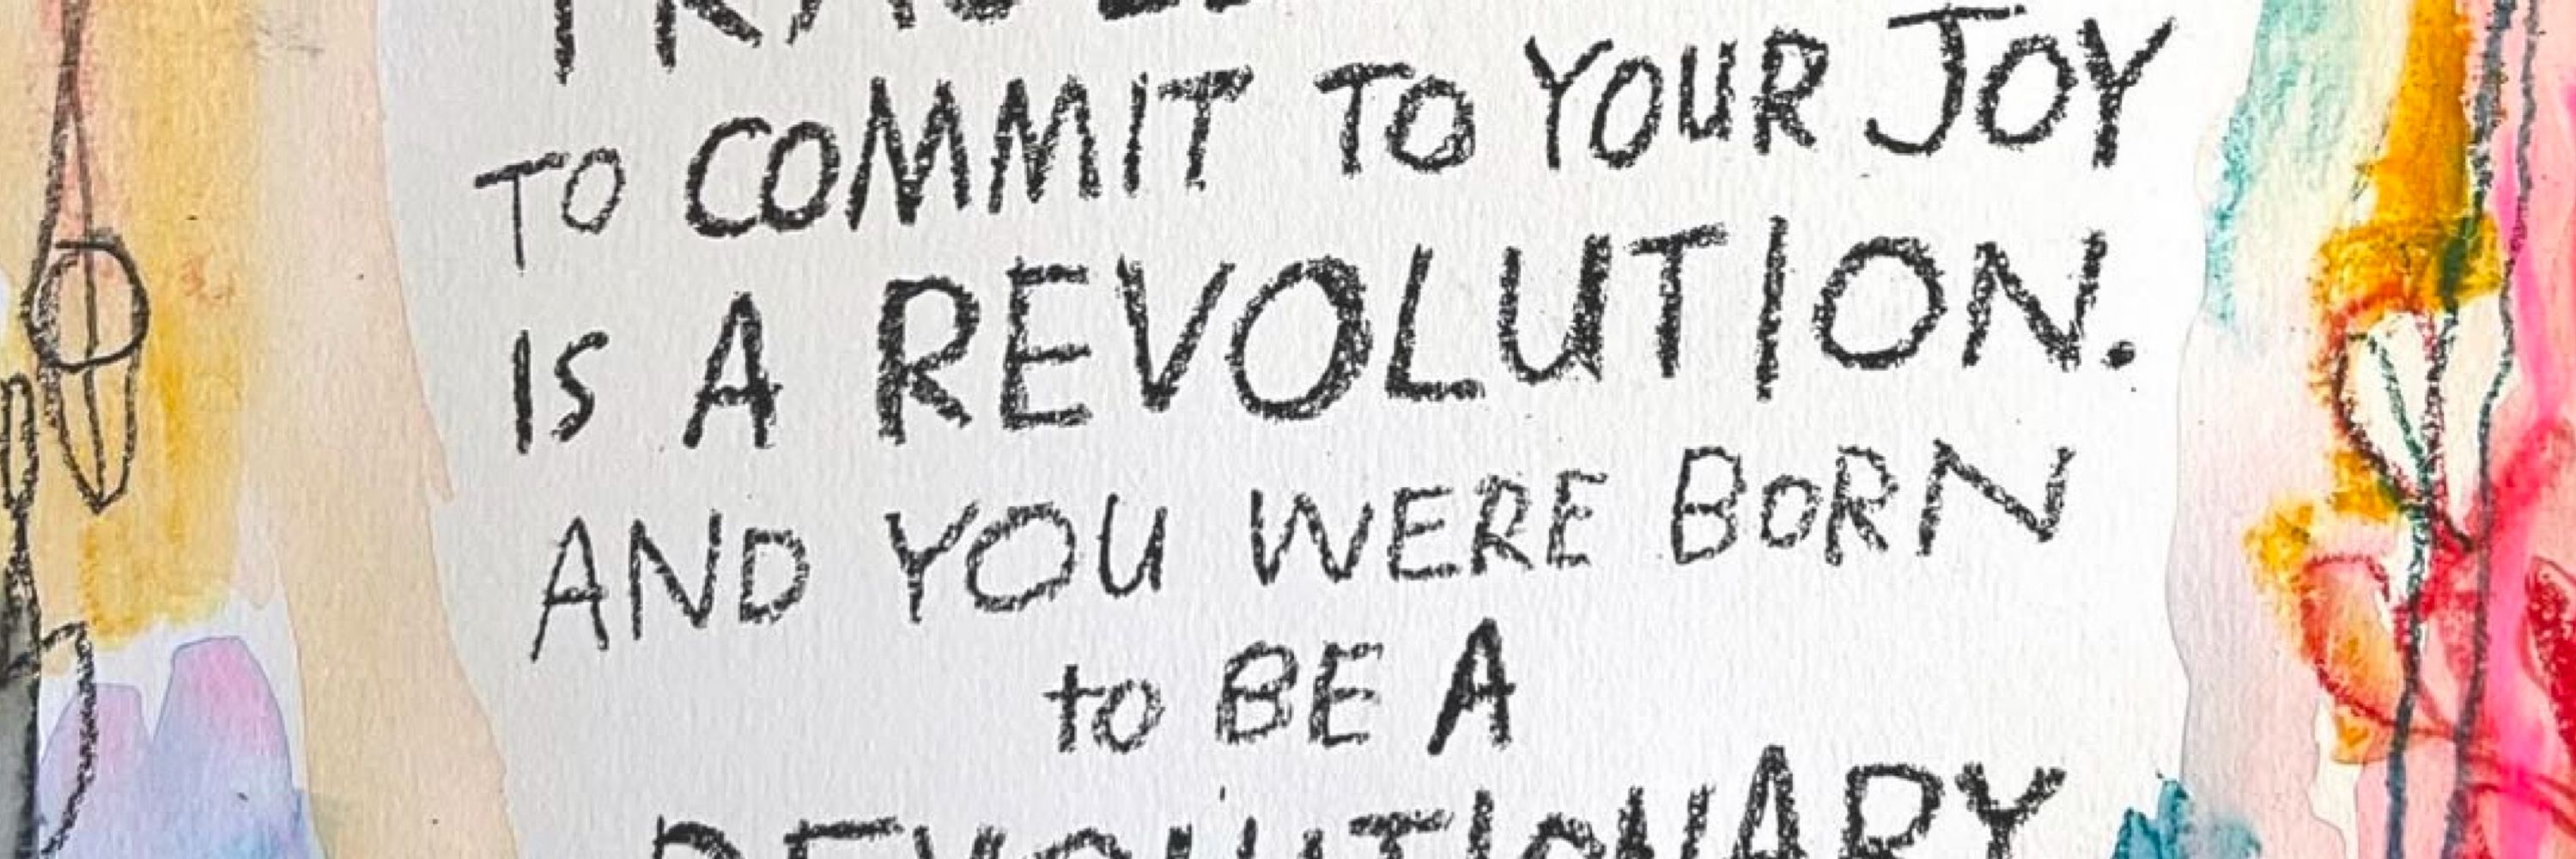 TO COMMIT TO YOUR JOY
IS A REVOLUTION.
AND YOU WERE BORN
to BE A
REVOLUTIONARY